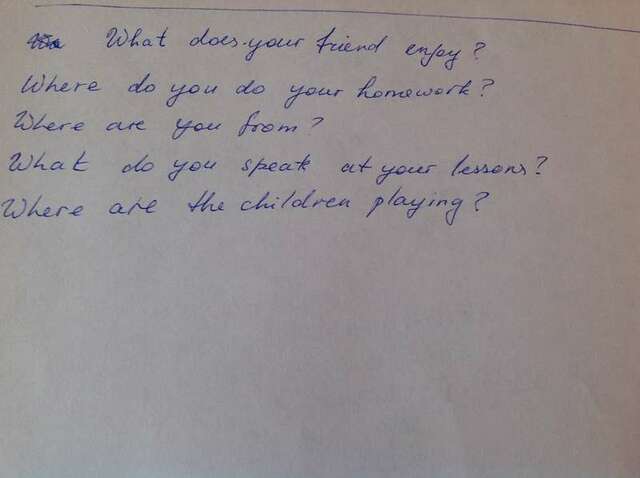 What does your friend enjoy?
Where do you do your homework?
Where are you from?
What do you speak at your lessons?
Where are the children playing?